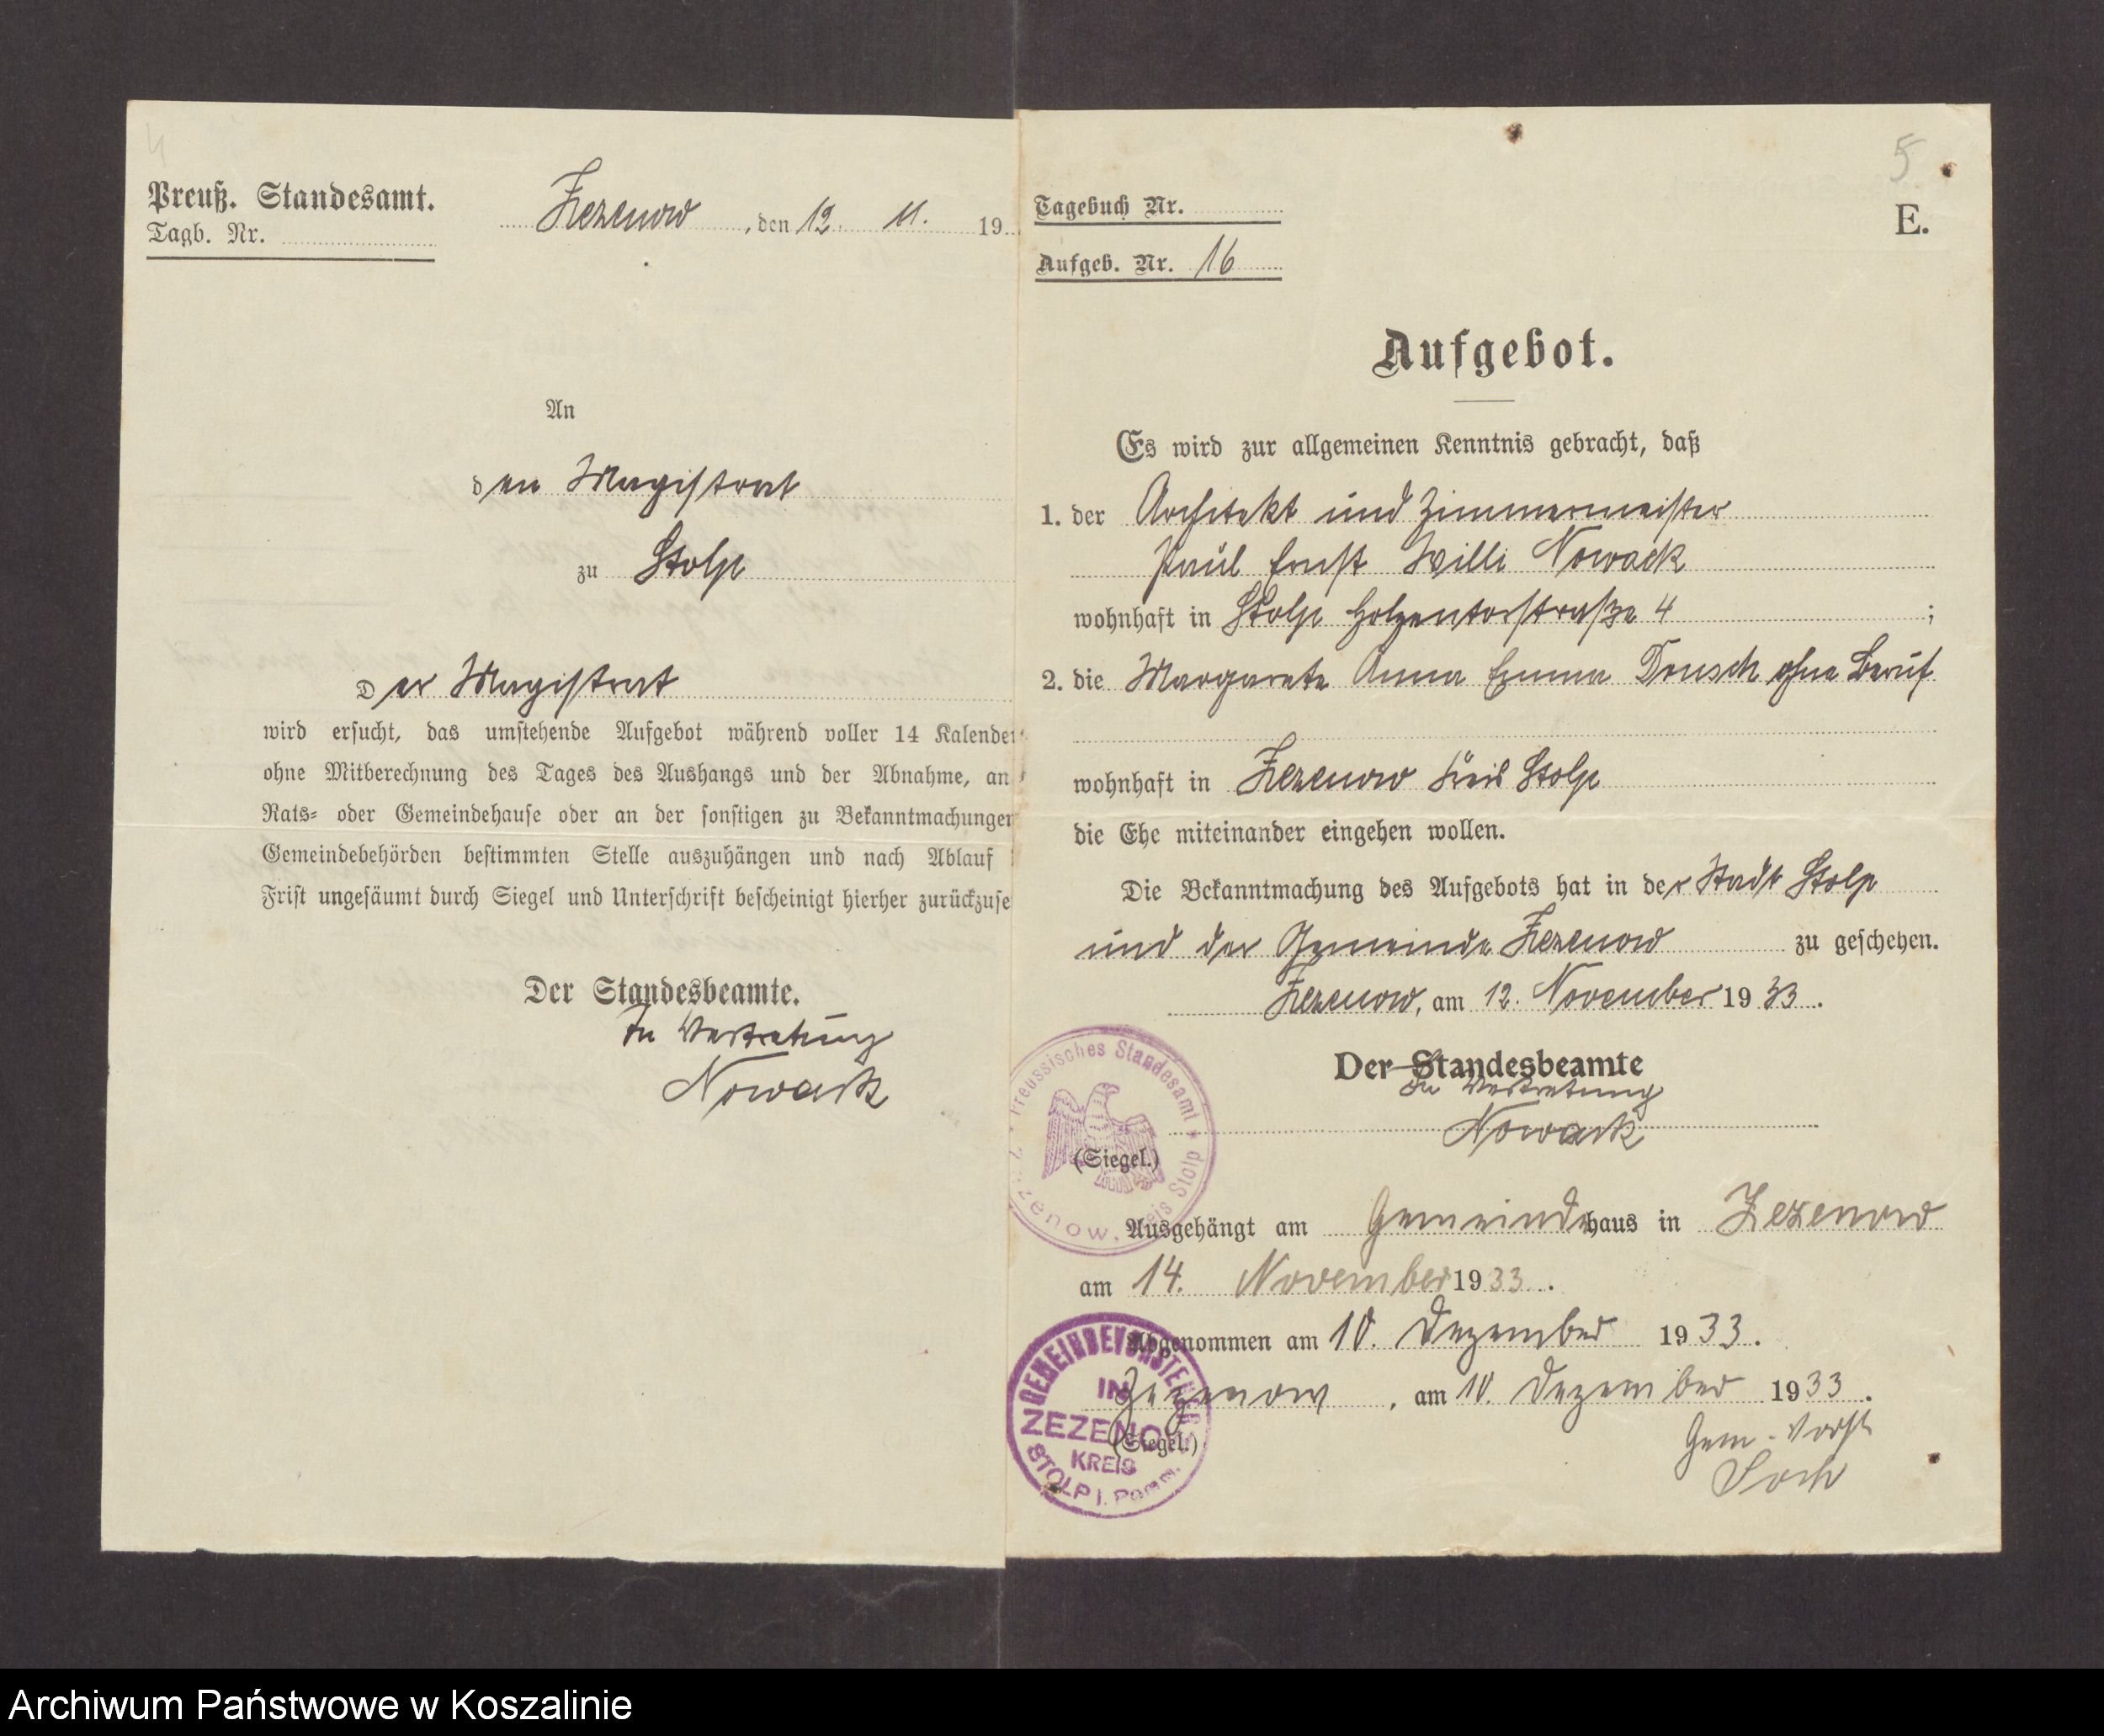 4
Preuß. Standesamt.
Tagb. Nr.
Zezenow, den 12. 11. 19
An
den Magistrat
zu Stolp
Der Magistrat
wird ersucht, das umstehende Aufgebot während voller 14 Kalender
ohne Mitberechnung des Tages des Aushangs und der Abnahme, an
Rats- oder Gemeindehause oder an der sonstigen zu Bekanntmachungen
Gemeindebehörden bestimmten Stelle auszuhängen und nach Ablauf
Frist ungesäumt durch Siegel und Unterschrift bescheinigt hierher zurückzuse
Der Standesbeamte.
In Vertretung
Nowack
5
Tagebuch Nr.
E.
Aufgeb. Nr. 16
Aufgebot.
Es wird zur allgemeinen Kenntnis gebracht, daß
1. der Architekt und Zimmermeister
Paul Ernst Willi Nowack
wohnhaft in Stolp Holzentorstraße 4 ;
2. die Margarete Anna Emma ohne Beruf
wohnhaft in Zezenow Kreis Stolp
die Ehe miteinander eingehen wollen.
Die Bekanntmachung des Aufgebots hat in der Stadt Stolp
und der Gemeinde Zezenow zu geschehen.
Zezenow, am 12. November 1933.
Der Standesbeamte
In Vertretung
Nowack
Preussisches Standesamt
zenow, Kreis Stolp
(Siegel.)
Ausgehängt am Gemeindehaus in Zezenow
am 14. November 1933.
Abgenommen am 10. Dezember 1933.
Zezenow, am 10. Dezember 1933.
GEMEINDEVORSTEHER
IN
ZEZENOW
KREIS
STOLP i. Pomm.
(Siegel.)
Gem. Vorst
Archiwum Państwowe w Koszalinie